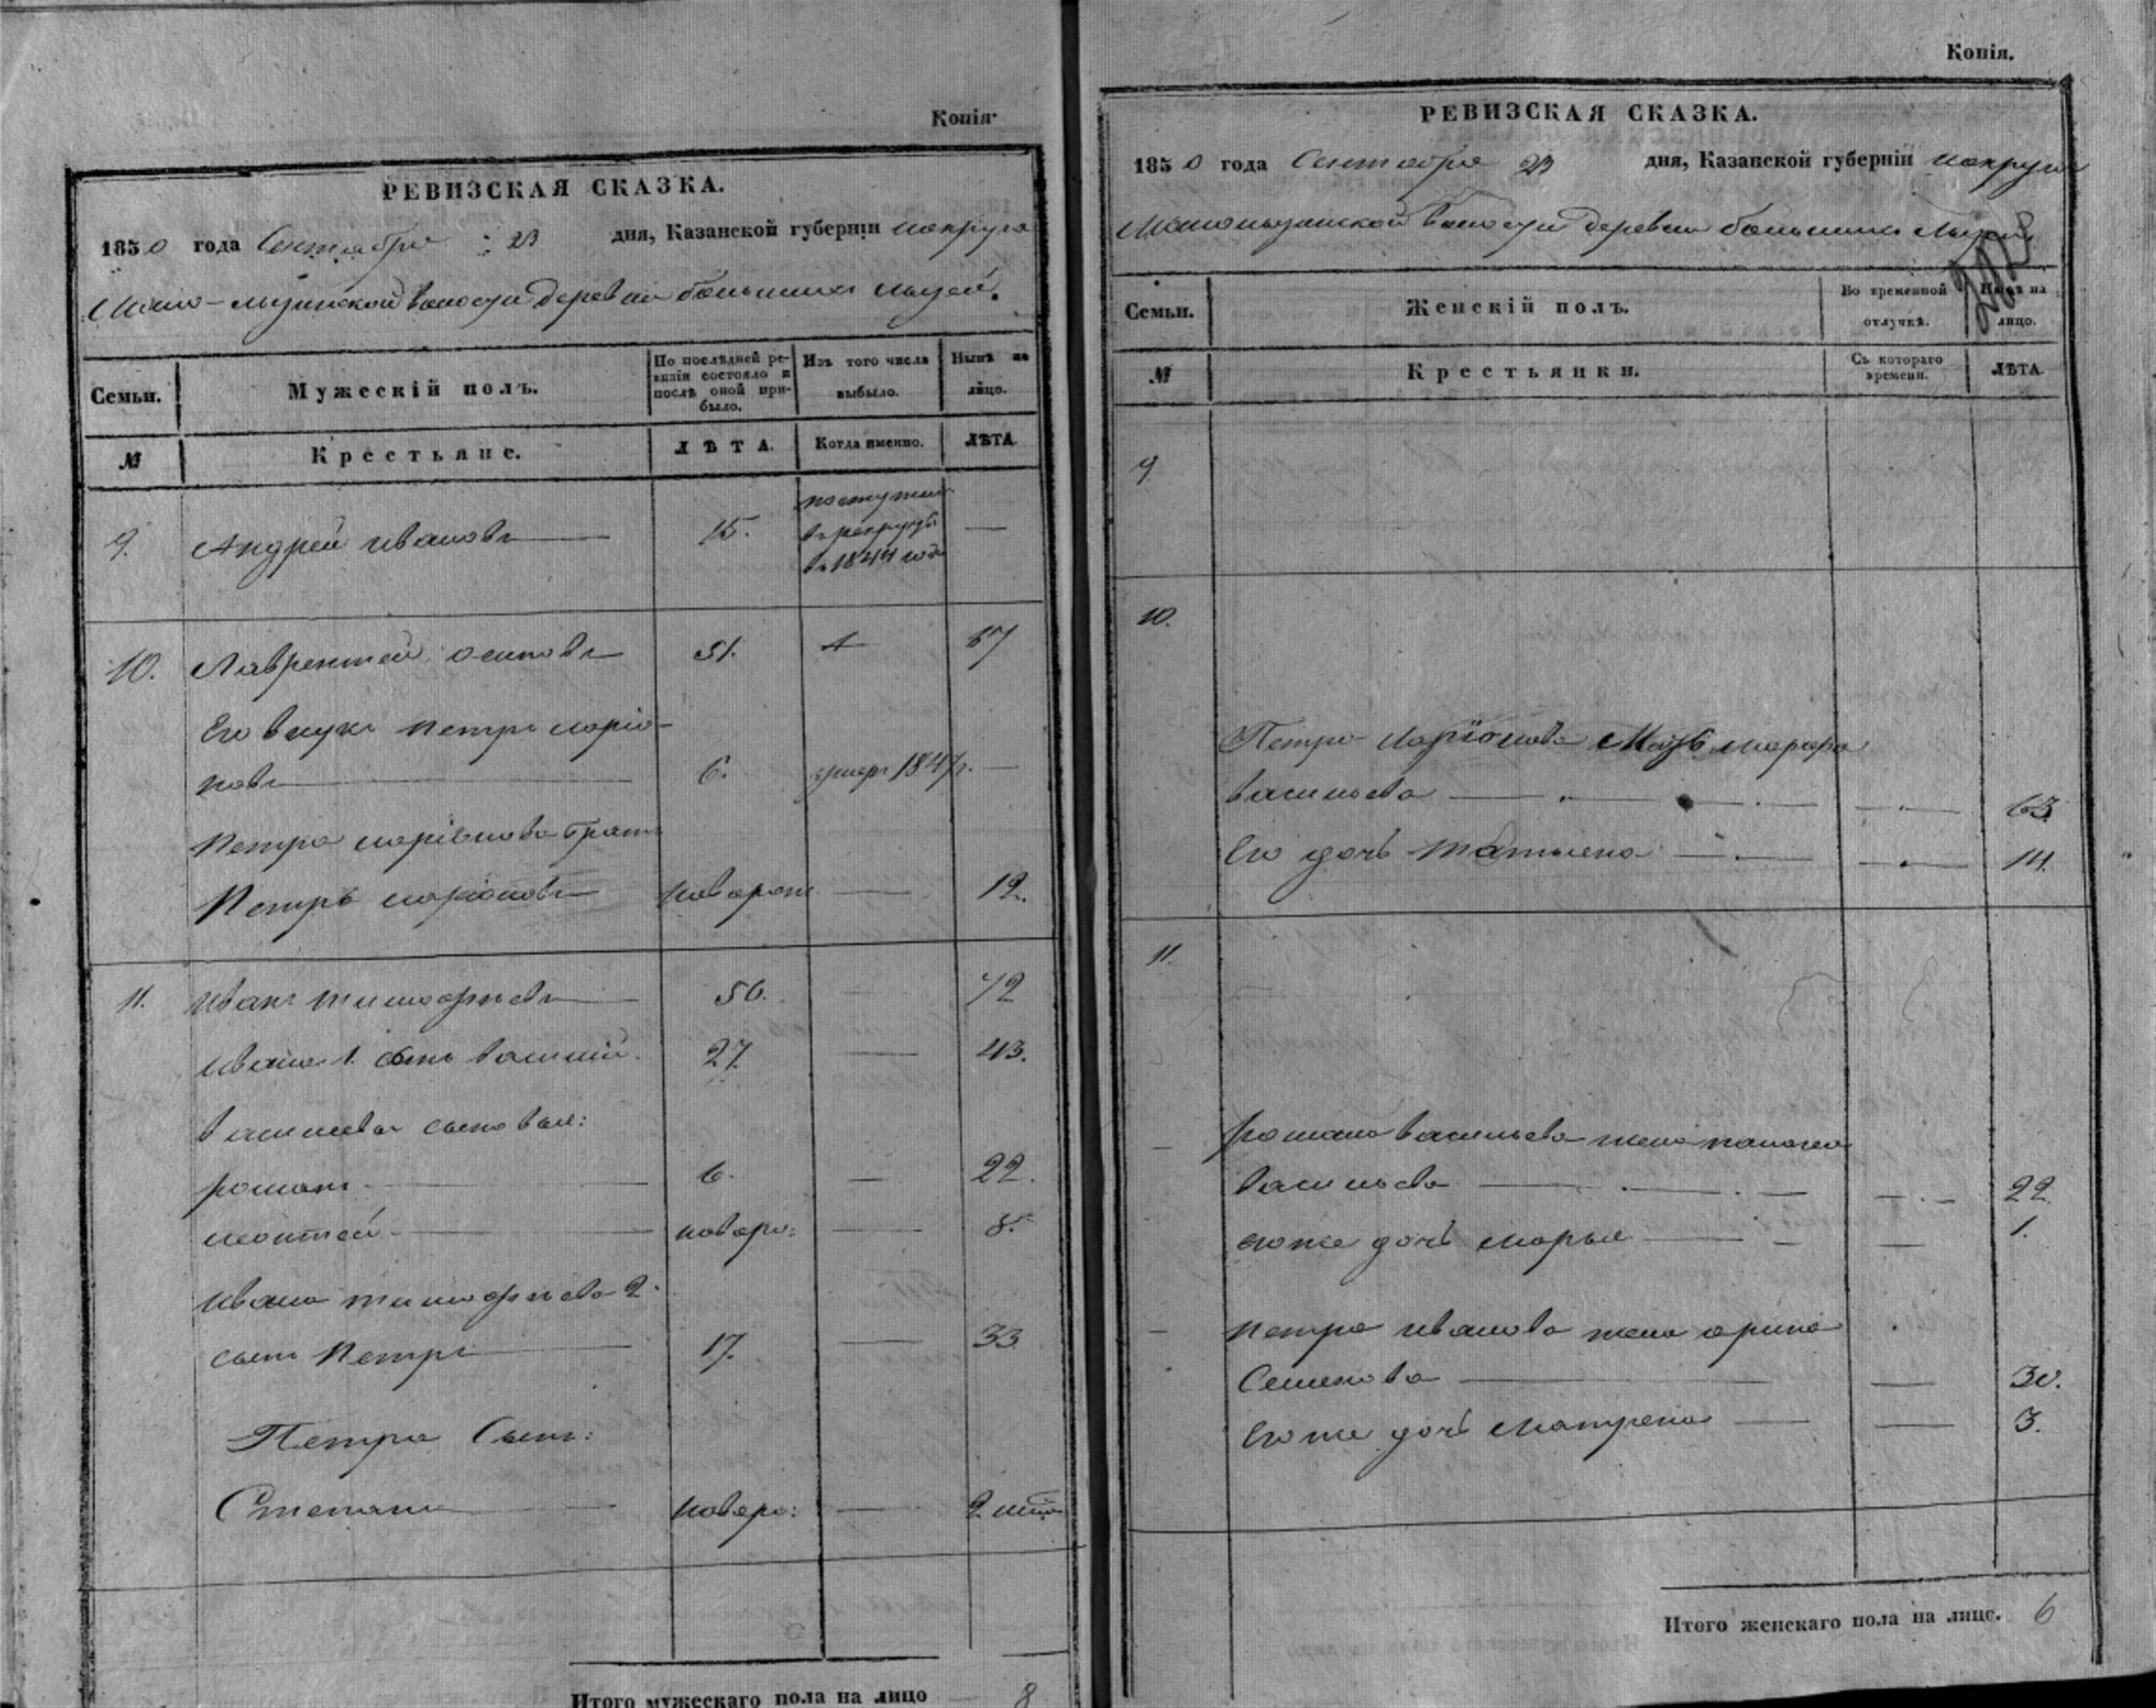 Копія.
РЕВИЗСКАЯ СКАЗКА.
1850 года Сентября 23 дня, Казанской губерніи
волости деревни большихъ
Семьи.
Мужескій полъ.
По послѣдней ре-
визіи состояло и
послѣ оной при-
было.
Изъ того числа
выбыло.
Нынѣ на
лицо.
№
Крестьяне.
ЛѢТА.
Когда именно.
ЛѢТА.
9. Андрей ивановъ 15. поступилъ
въ рекруты
въ 1844 годе
10. Лаврентей осиповъ 51. 67
Его внукъ петръ ларіо-
новъ 6. умеръ 1847. —
Петра ларіонова братъ
Петръ ларіоновъ новорож 12.
11. иванъ тимофеевъ 56. — 72
ивана 1. сынъ василий. 27. — 43.
васильевы сыновья:
романъ 6. — 22.
леонтей новоро: — 8.
ивана тимофеева 2.
сынъ Петръ 17. — 33.
Петра Сынъ:
Степанъ новоро: — 2
Итого мужескаго пола на лицо 8
Копія.
РЕВИЗСКАЯ СКАЗКА.
1850 года Сентября 23 дня, Казанской губерніи
волости деревни большихъ
Семьи.
Женскій полъ.
Во временной
отлучкѣ.
Нынѣ на
лицо.
№
Крестьянки.
Съ котораго
времени.
ЛѢТА.
9
10.
Петра Ларіонова Мать марфа
васильева 63
Его дочь татьяна 14.
11.
романа васильева жена
васильева 22
его же дочь марья 1.
петра иванова жена арина
Семенова 30.
Его же дочь матрена 3.
Итого женскаго пола на лице. 6